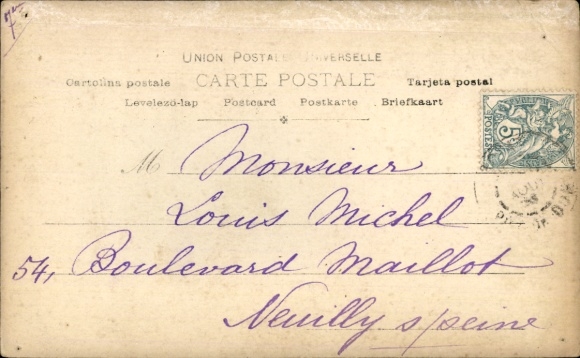 7
UNION POSTALE UNIVERSELLE
CARTE POSTALE
Cartolina postale
Tarjeta postal
Levelező-lap Postcard Postkarte Briefkaart
M Monsieur
Louis Michel
54, Boulevard Maillot
Neuilly s/seine
5c
POSTES